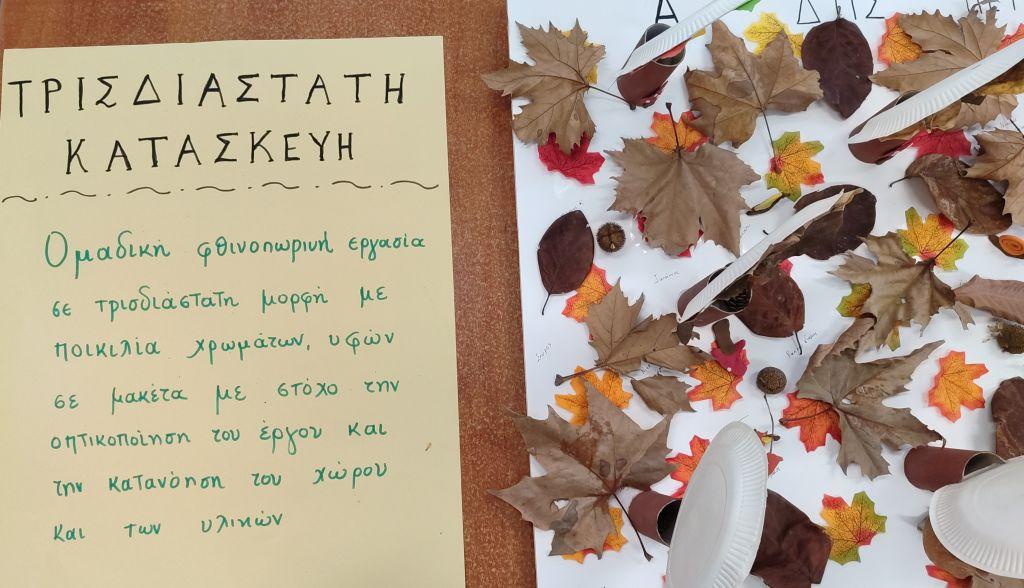 ΤΡΙΣΔΙΑΣΤΑΤΗ
ΚΑΤΑΣΚΕΥΗ
Ομαδική φθινοπωρινή εργασία
σε τρισδιάστατη μορφή με
ποικιλία χρωμάτων, υφών
σε μακέτα με στόχο την
οπτικοποίηση του έργου και
την κατανόηση του χώρου
και των υλικών